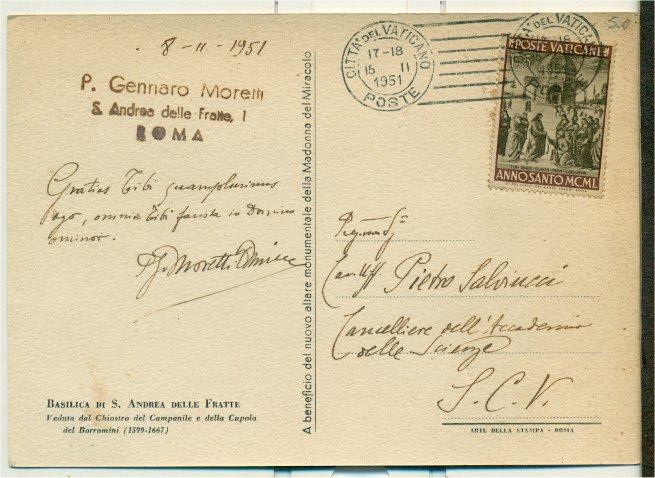 8-11-1951
P. Gennaro Moretti
S. Andrea delle Fratte, 1
ROMA
Gratias Tibi quamplurimas
ago, omnia Tibi fausta in Domino
ominor.
Moretti
BASILICA DI S. ANDREA DELLE FRATTE
Veduta dal Chiostro del Campanile e della Cupola
del Borromini (1599-1667)
A beneficio del nuovo altare monumentale della Madonna del Miracolo
CITTA' DEL VATICANO
17-18
15 II
1951
POSTE
POSTE VATICANE
ANNO SANTO MCML
50
Pietro Salviucci
Cancelliere dell'Accademia
delle Scienze
S.C.V.
ARTE DELLA STAMPA - ROMA